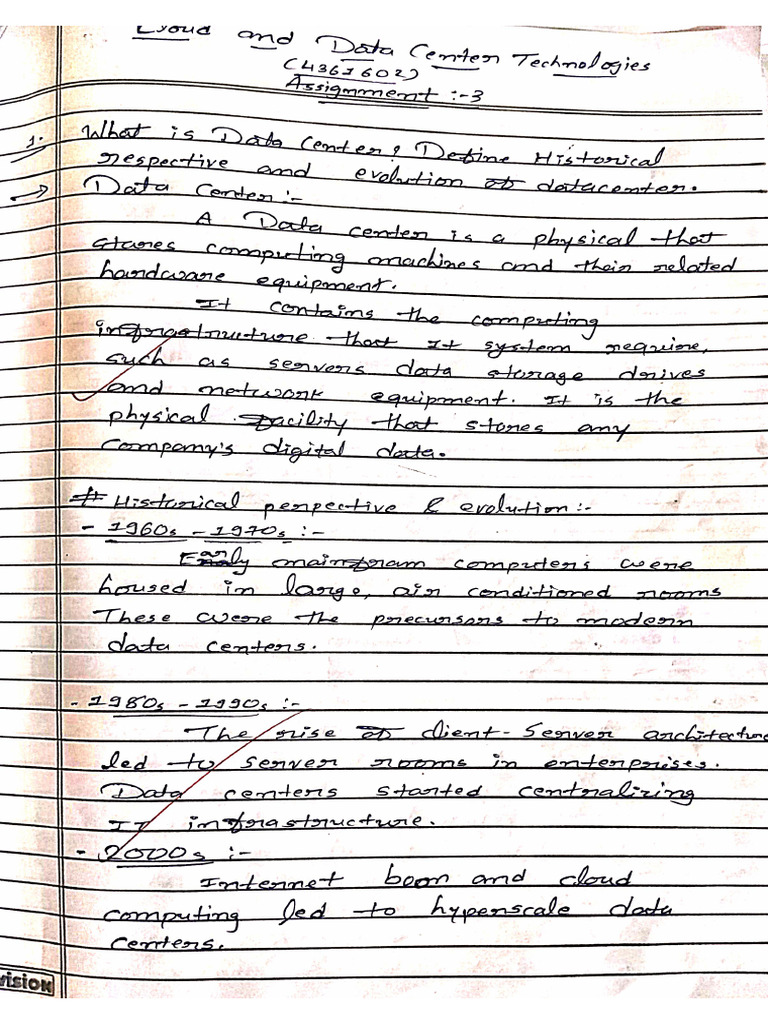 Cloud and Data Center Technologies
(4361602)
Assignment :- 3
1. What is Data Center? Define Historical
respective and evolution of datacenter.
→ Data Center :-
A Data center is a physical that
stores computing machines and their related
hardware equipment.
It contains the computing
infrastructure that It system require,
such as servers data storage drives
and network equipment. It is the
physical facility that stores any
Company's digital data.
# Historical perpective & evolution :-
- 1960s - 1970s :-
Early mainfram computers were
housed in large, air conditioned rooms
These were the precursors to modern
data centers.
- 1980s - 1990s :-
The rise of client-server architecture
led to server rooms in enterprises.
Data centers started centralizing
IT infrastructure.
- 2000s :-
Internet boom and cloud
computing led to hyperscale data
centers.
vision